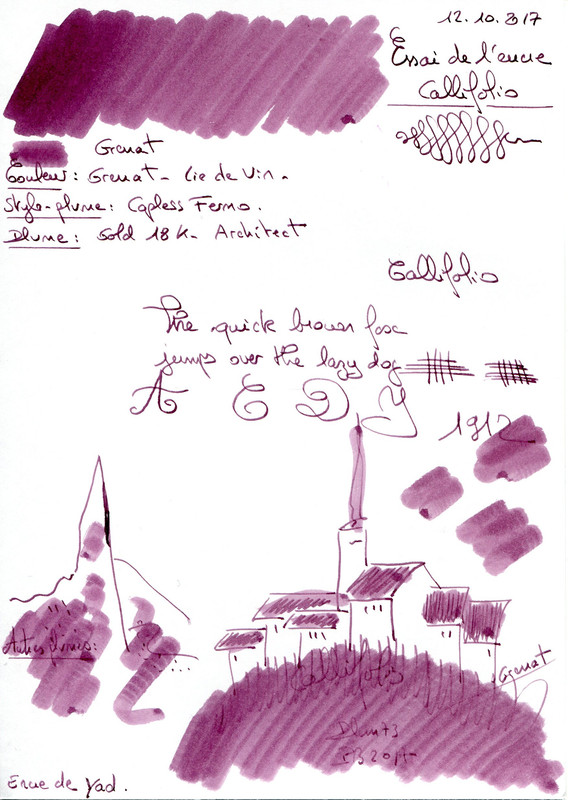 12.10.2017
Essai de l'encre
Callifolio
Grenat
Couleur: Grenat - Lie de Vin -
Stylo-plume: Capless Fermo.
Plume: Gold 18 K - Architect
Callifolio
The quick brown fox
jumps over the lazy dog
A E D Y
1912
Callifolio
Grenat
Encre de Yad.